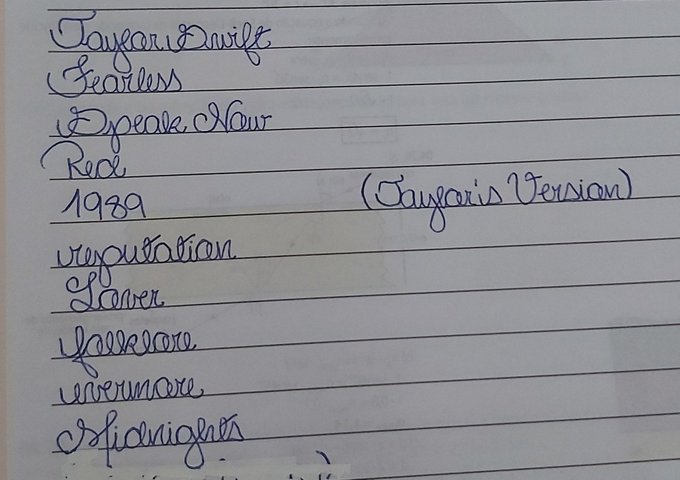 Taylor Swift
Fearless
Speak Now
Red
1989 (Taylor's Version)
reputation
Lover
folklore
evermore
Midnights